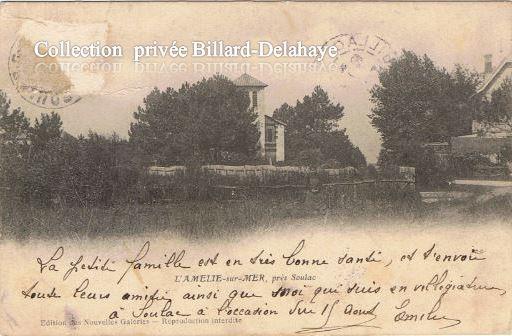 Collection privée Billard-Delahaye
La petite famille est en très bonne santé, et t'envoie
L'AMELIE-sur-MER, près Soulac
toute leurs amitié ainsi que moi qui suis en villégiature,
à Soulac à l'occasion du 15 Aout
Edition des Nouvelles Galeries — Reproduction interdite